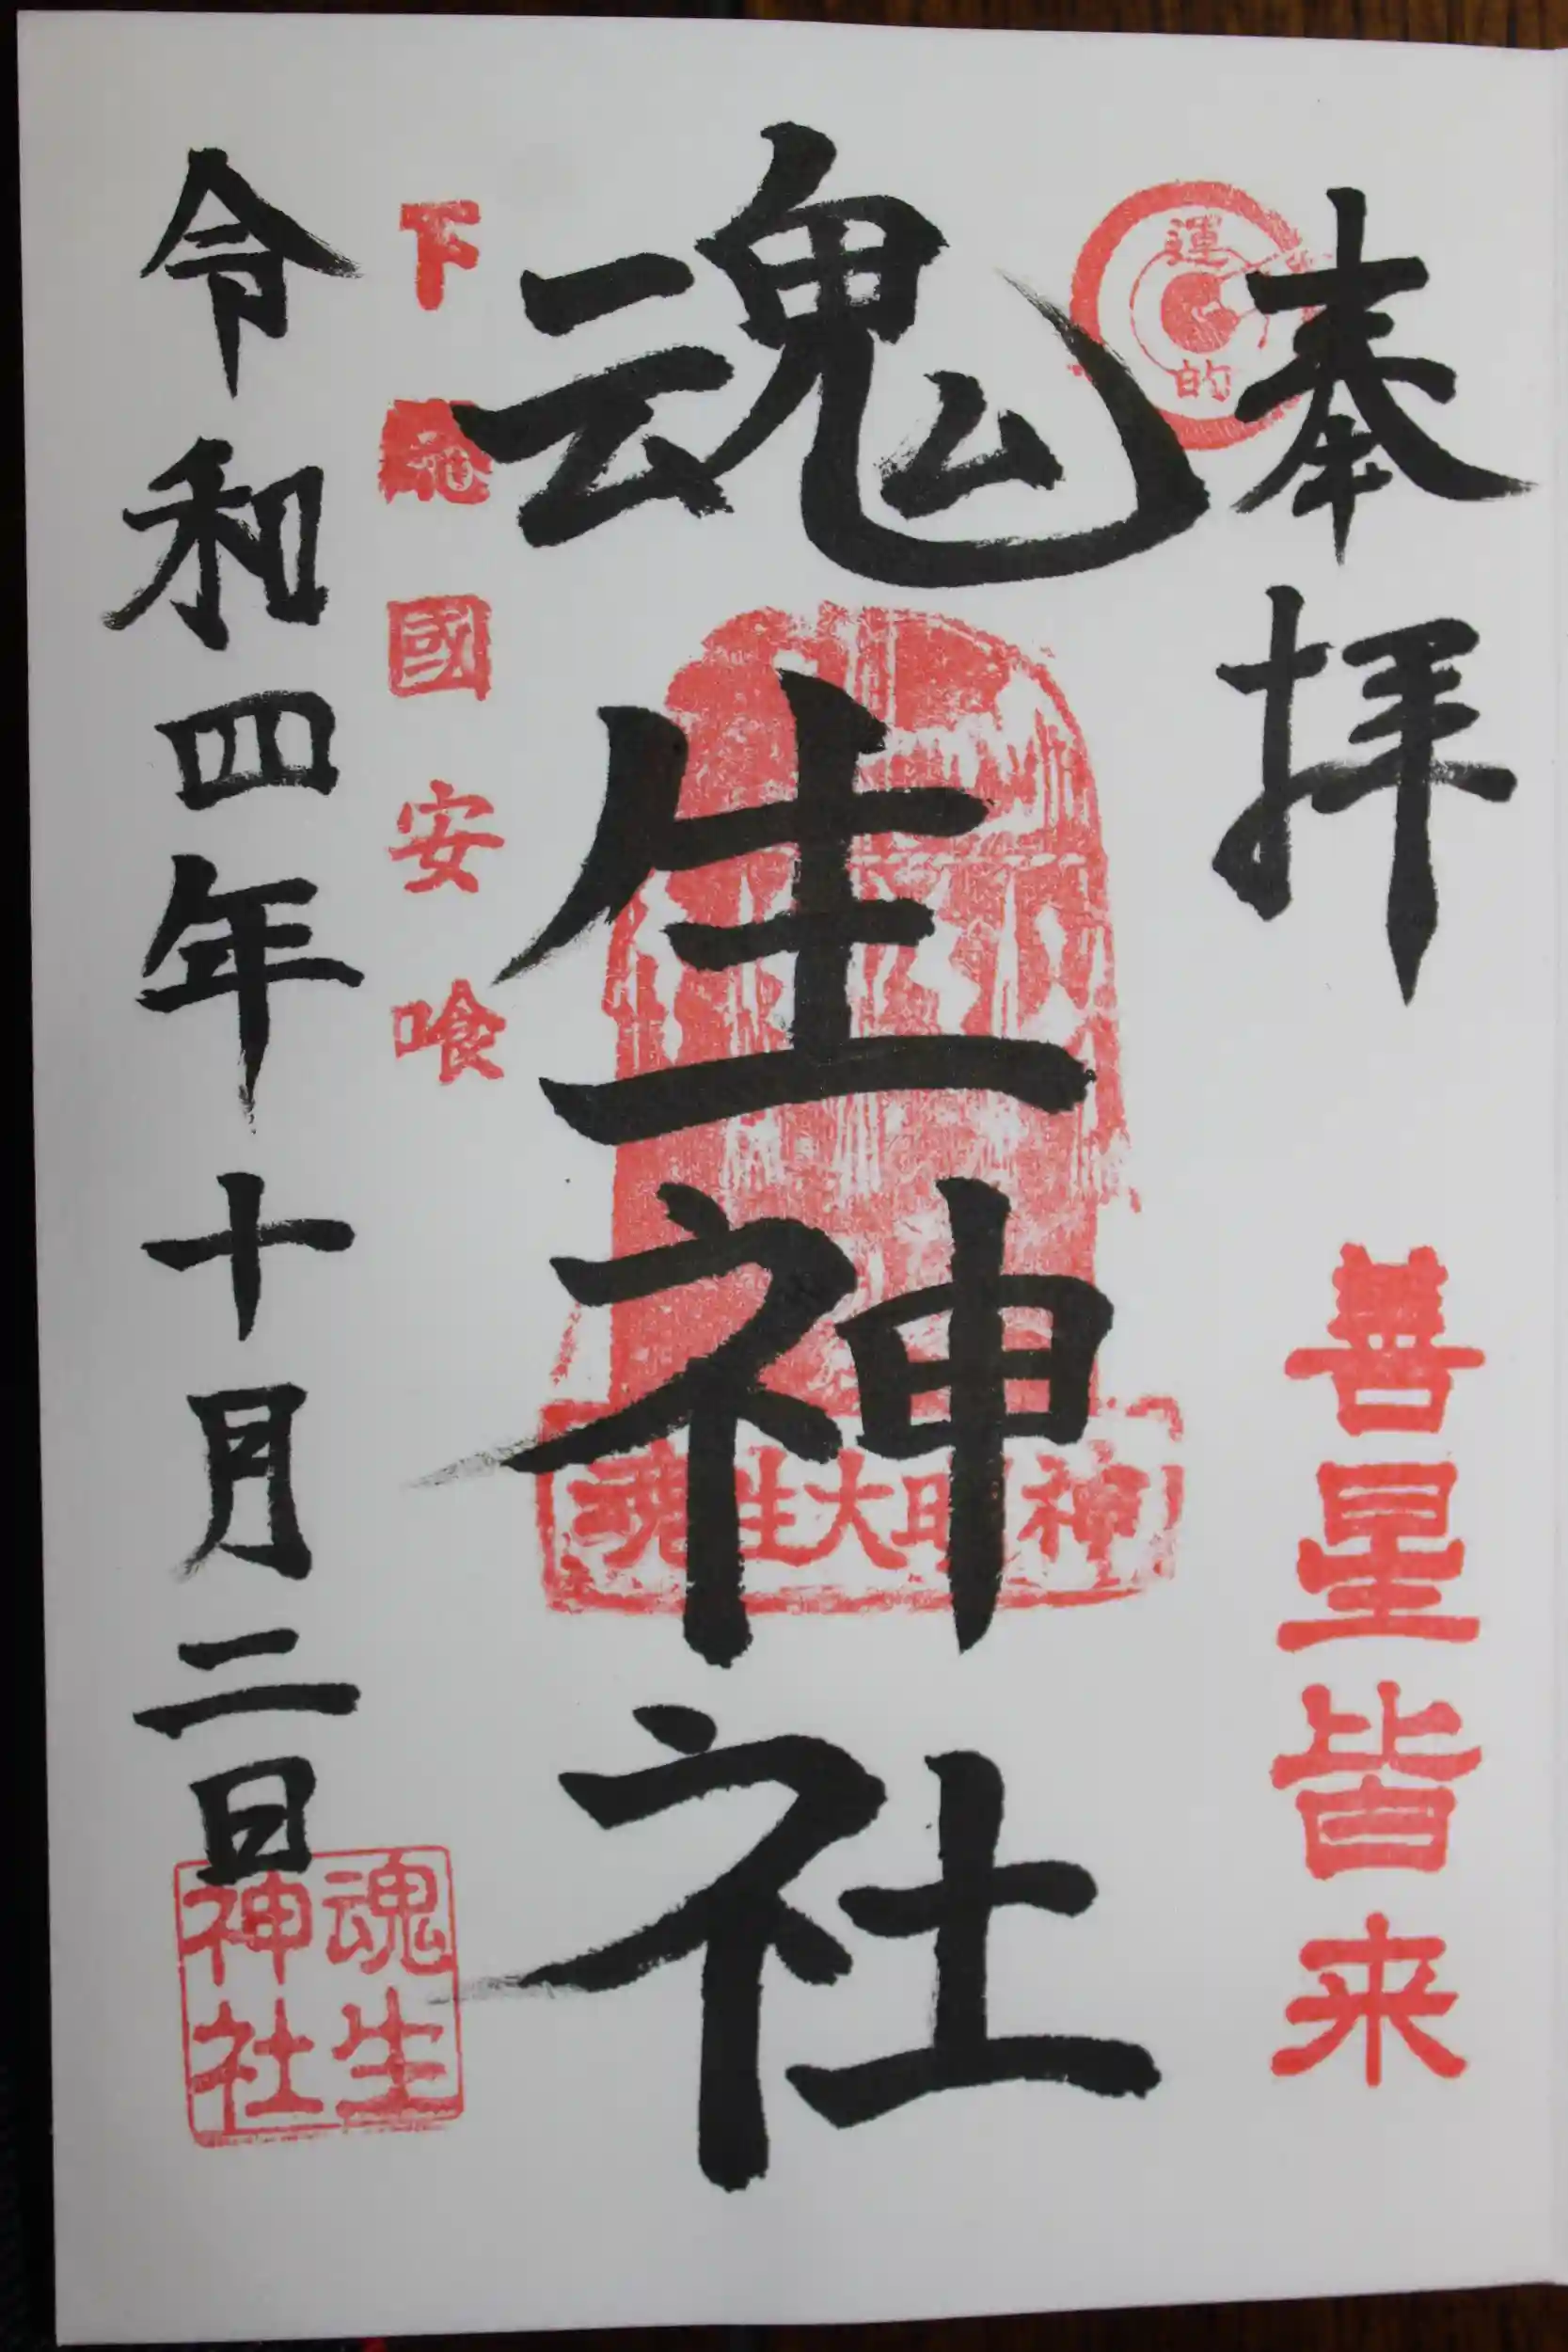 奉拝
運
的
善星皆来
魂生神社
魂生大明神
下総國安喰
令和四年十月二日
魂生
神社